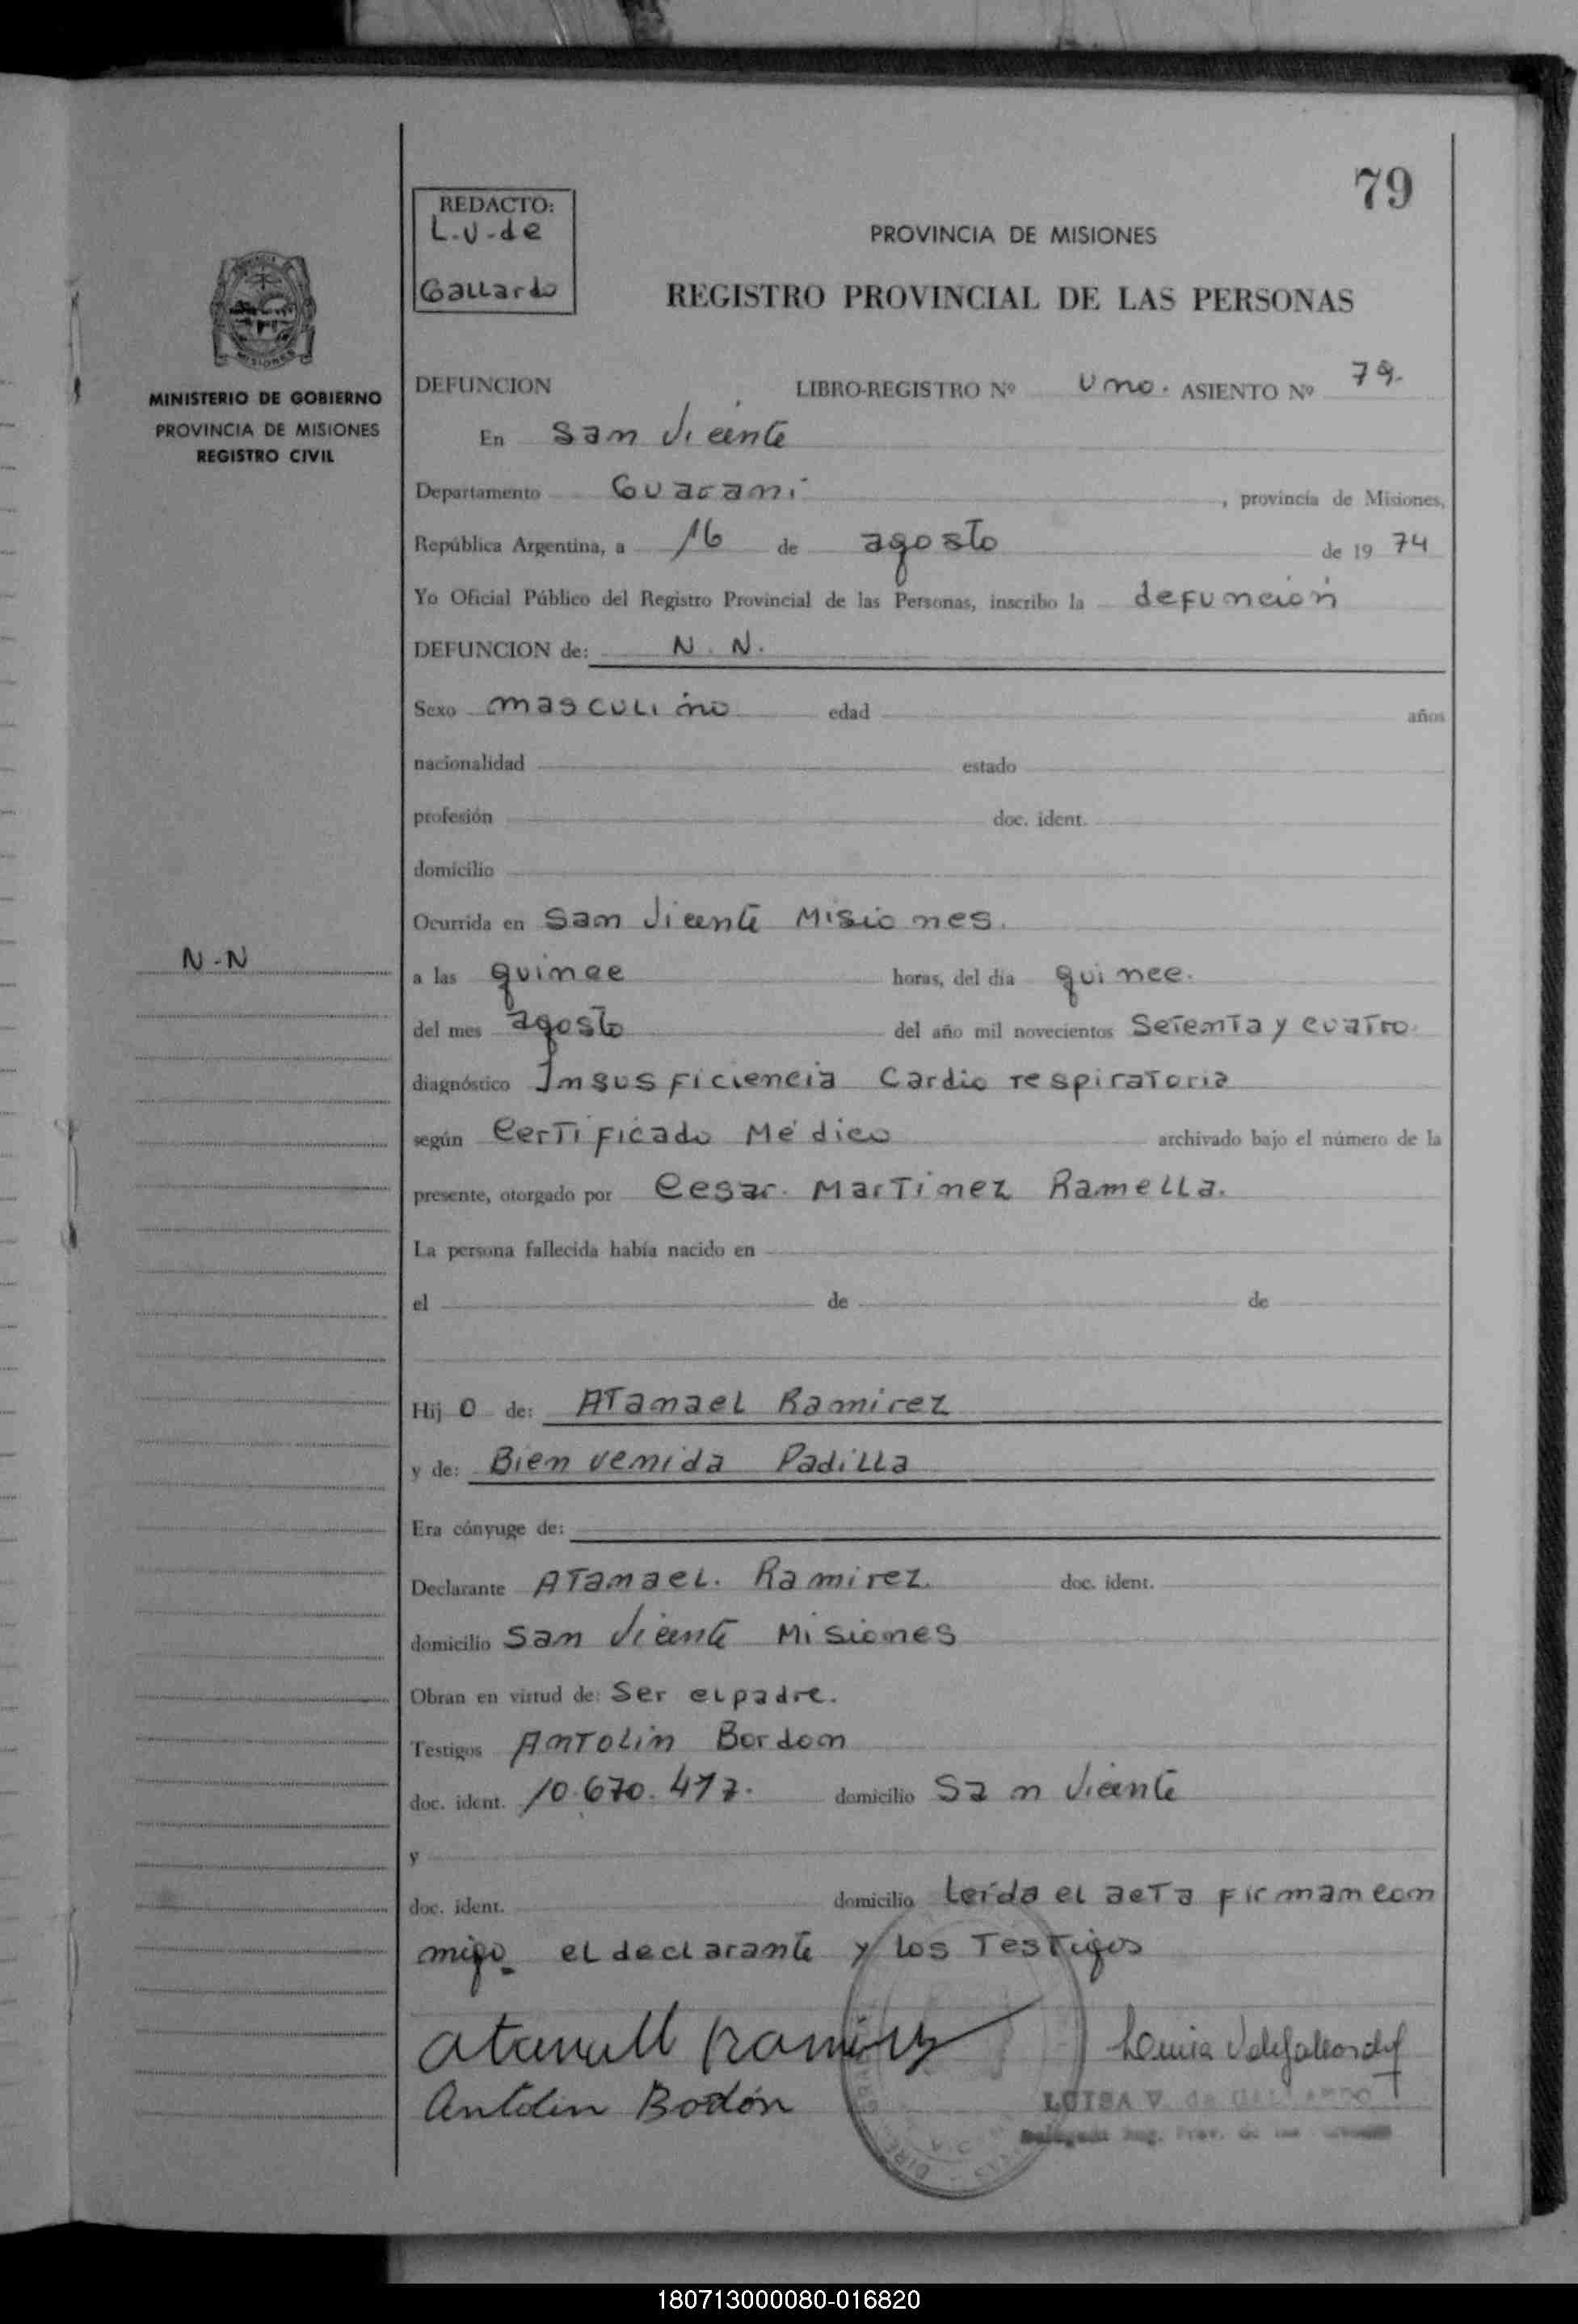 79
REDACTO:
L.V-de
Gallardo
PROVINCIA DE MISIONES
REGISTRO PROVINCIAL DE LAS PERSONAS
MISIONES
MINISTERIO DE GOBIERNO
PROVINCIA DE MISIONES
REGISTRO CIVIL
DEFUNCION LIBRO-REGISTRO Nº uno. ASIENTO Nº 79.
En San Vicente
Departamento Guarani, provincia de Misiones,
República Argentina, a 16 de agosto de 1974
Yo Oficial Público del Registro Provincial de las Personas, inscribo la defunción
DEFUNCION de: N. N.
Sexo masculino edad años
nacionalidad estado
profesión doc. ident.
domicilio
Ocurrida en San Vicente Misiones.
N-N
a las quince horas, del día quince.
del mes agosto del año mil novecientos Setenta y cuatro
diagnóstico Insusficiencia Cardio respiratoria
según Certificado Médico archivado bajo el número de la
presente, otorgado por Cesar. Martinez Ramella.
La persona fallecida había nacido en
el de de
Hijo de: Atanael Ramirez
y de: Bienvenida Padilla
Era cónyuge de:
Declarante Atanael. Ramirez. doc. ident.
domicilio San Vicente Misiones
Obran en virtud de: Ser el padre.
Testigos Antolin Bordon
doc. ident. 10.670.417. domicilio San Vicente
y
doc. ident. domicilio Leída el acta firman con
migo el declarante y los Testigos
Atanaell Ramirez
Antolin Bodón
LUISA V. de GALLARDO
180713000080-016820